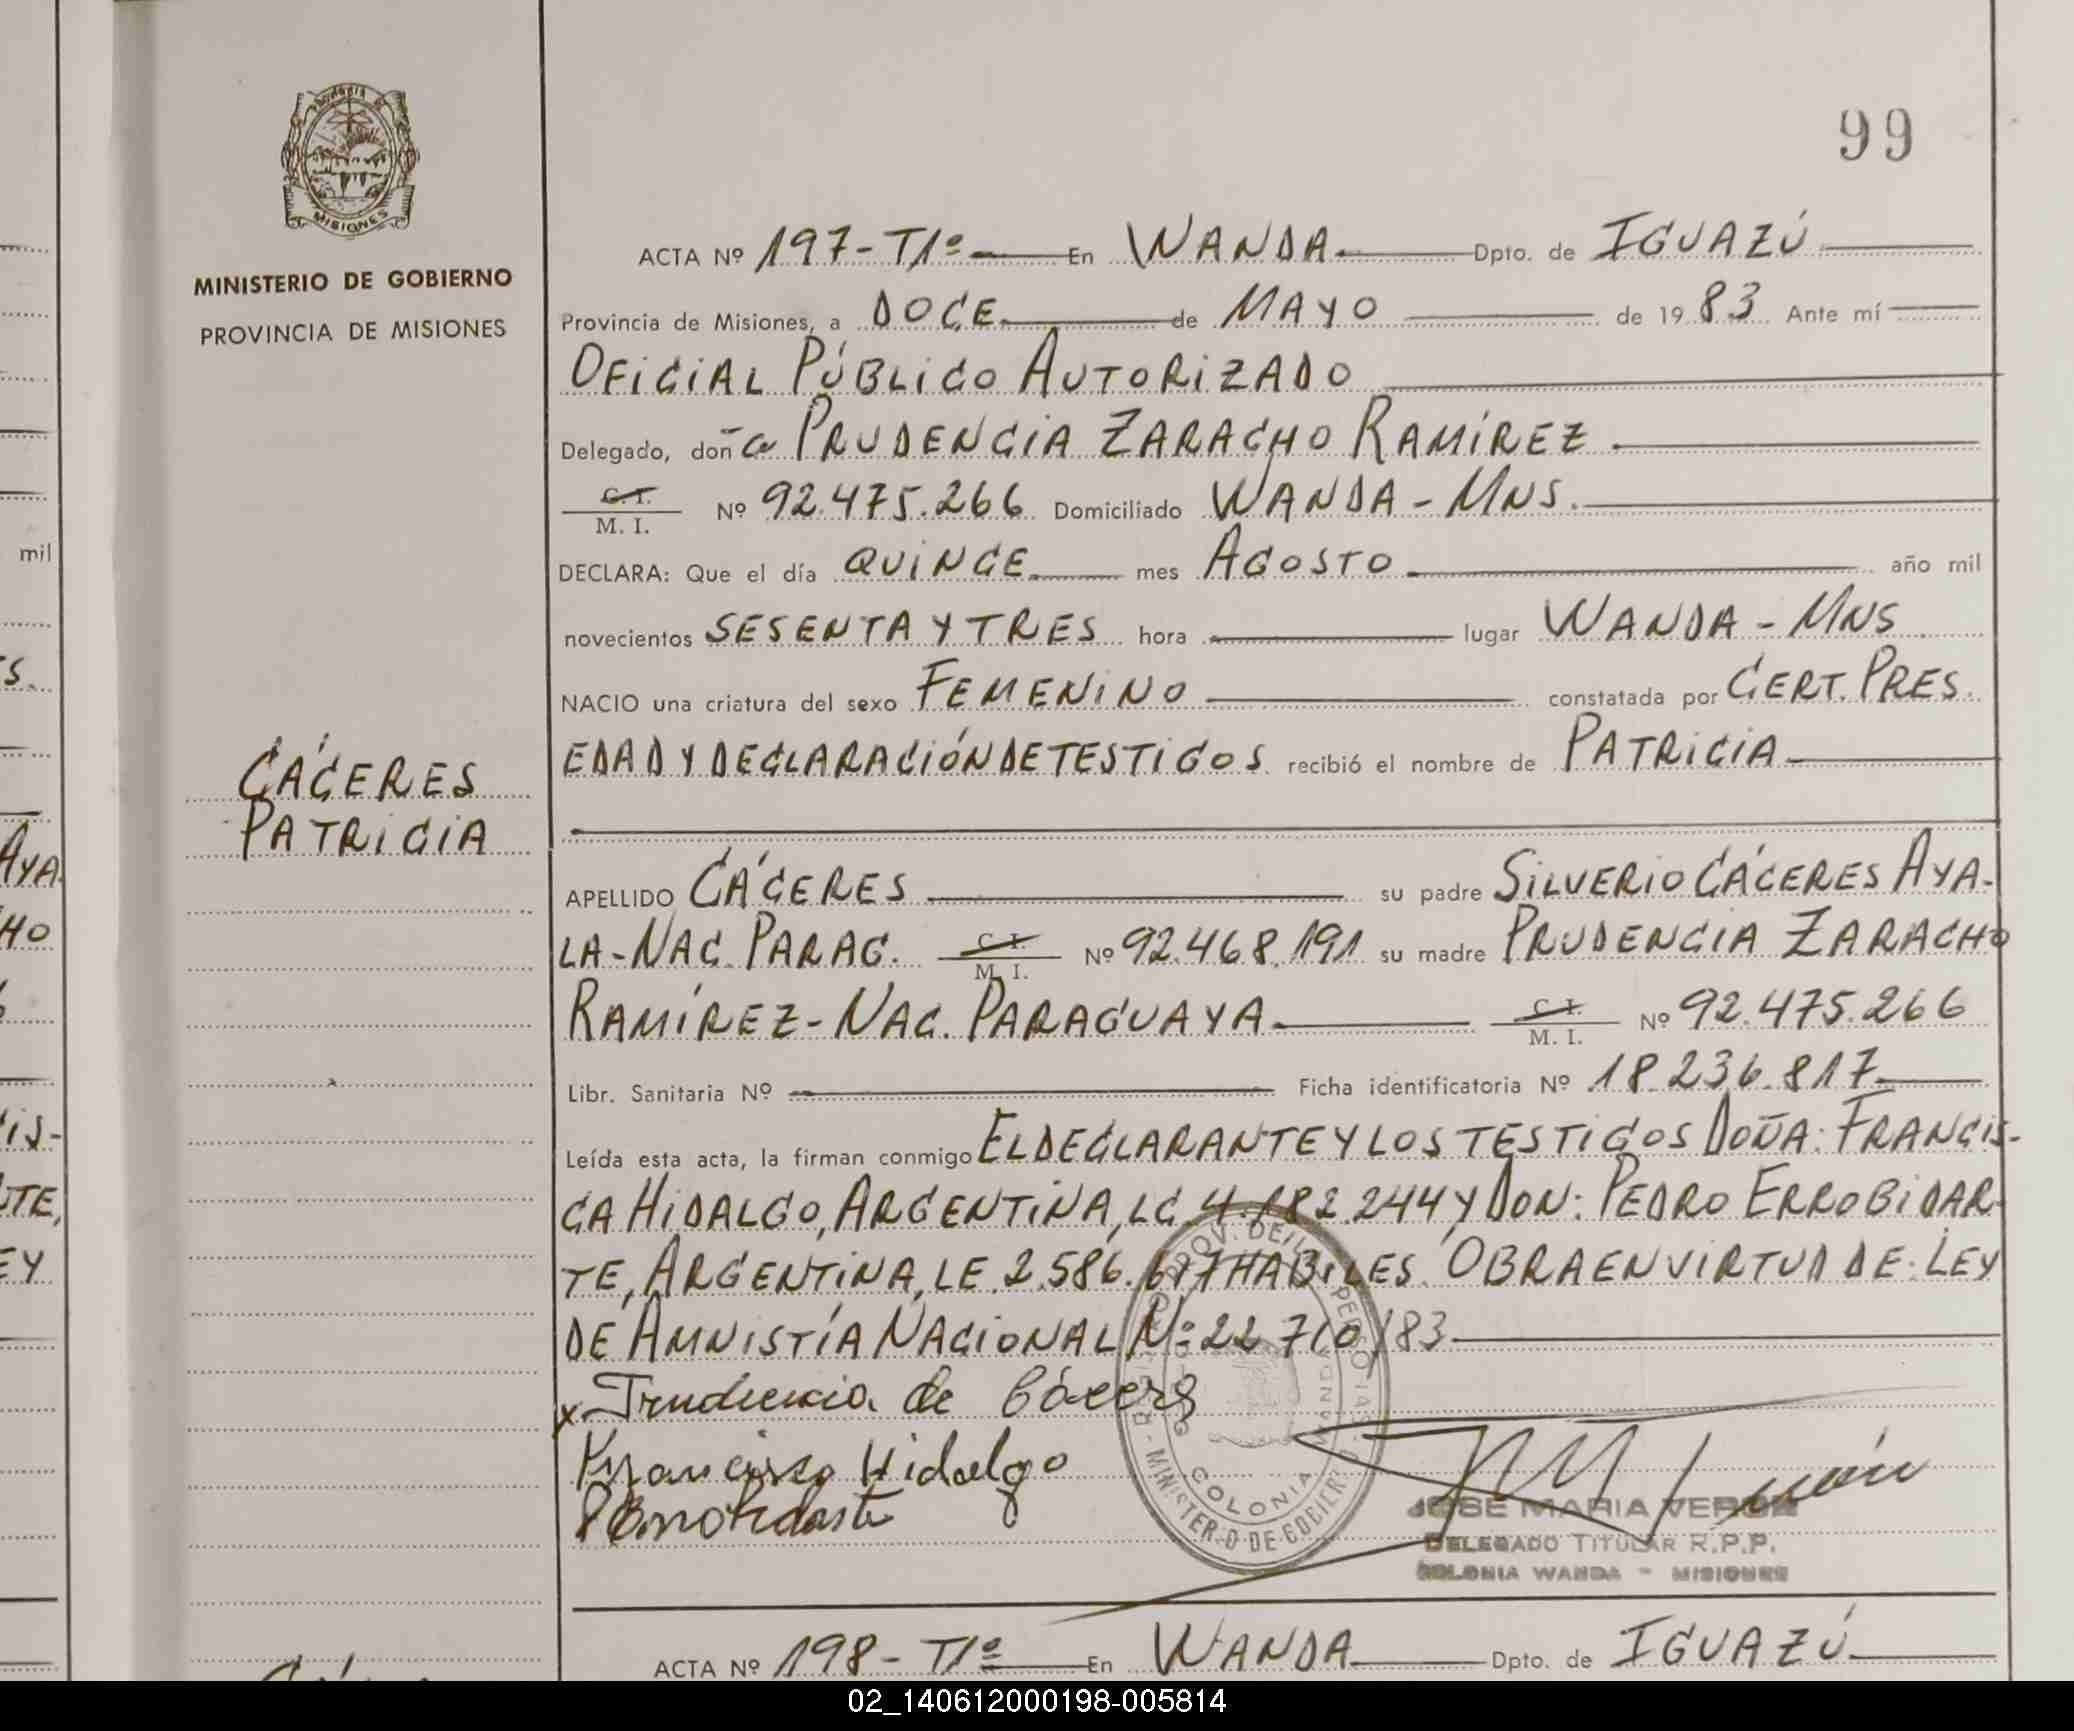 99
MISIONES
MINISTERIO DE GOBIERNO
PROVINCIA DE MISIONES
CÁCERES
PATRICIA
ACTA Nº 197-T1º- En WANDA Dpto. de IGUAZÚ
Provincia de Misiones, a DOCE de MAYO de 1983 Ante mí
OFICIAL PÚBLICO AUTORIZADO
Delegado, doña PRUDENCIA ZARACHO RAMÍREZ
C. I.
M. I. Nº 92.475.266 Domiciliado WANDA - MNS.
DECLARA: Que el día QUINCE mes AGOSTO año mil
novecientos SESENTA Y TRES hora lugar WANDA - MNS
NACIO una criatura del sexo FEMENINO constatada por CERT. PRES.
EDAD Y DECLARACIÓN DE TESTIGOS recibió el nombre de PATRICIA
APELLIDO CÁCERES su padre SILVERIO CÁCERES AYA-
LA-NAC. PARAG. C. I. M. I. Nº 92.468.191 su madre PRUDENCIA ZARACHO
RAMÍREZ-NAC. PARAGUAYA C. I. M. I. Nº 92.475.266
Libr. Sanitaria Nº Ficha identificatoria Nº 18.236.817
Leída esta acta, la firman conmigo EL DECLARANTE Y LOS TESTIGOS DOÑA: FRANCIS-
CA HIDALGO, ARGENTINA, LC. 4.182.244 Y DON: PEDRO ERROBIDAR-
TE, ARGENTINA, LE. 2.586.617 HABILES. OBRA EN VIRTUD DE: LEY
DE AMNISTÍA NACIONAL Nº 22.710/83
x Prudencia de Cáceres
Francisca Hidalgo
PErrobidarte
COLONIA WANDA
MINISTERIO DE GOBIER
JOSE MARIA VERON
DELEGADO TITULAR R.P.P.
COLONIA WANDA - MISIONES
ACTA Nº 198-T1º En WANDA Dpto. de IGUAZÚ
mil
S.
AYA
HO
CIS-
TE,
EY
02_140612000198-005814